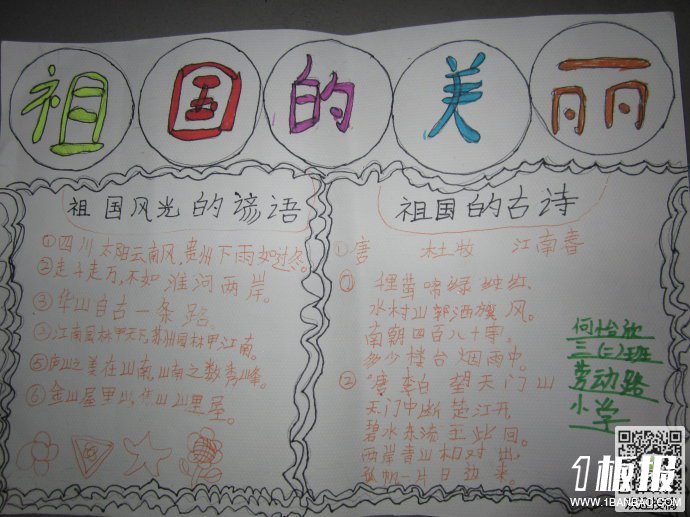 祖国的美丽
祖国风光的谚语
①四川太阳云南风,贵州下雨如过冬。
②走千走万,不如淮河两岸。
③华山自古一条路。
④江南园林甲天下,苏州园林甲江南。
⑤庐山之美在山南,山南之数秀峰。
⑥金山屋里山,焦山山里屋。
祖国的古诗
①唐 杜牧 江南春
①
莺啼绿映红,
水村山郭酒旗风。
南朝四百八十寺,
多少楼台烟雨中。
②唐 李白 望天门山
天门中断楚江开
碧水东流至此回。
两岸青山相对出,
孤帆一片日边来。
何怡欣
三(二)班
劳动路
小学
1板报
WWW.1BANBAO.COM